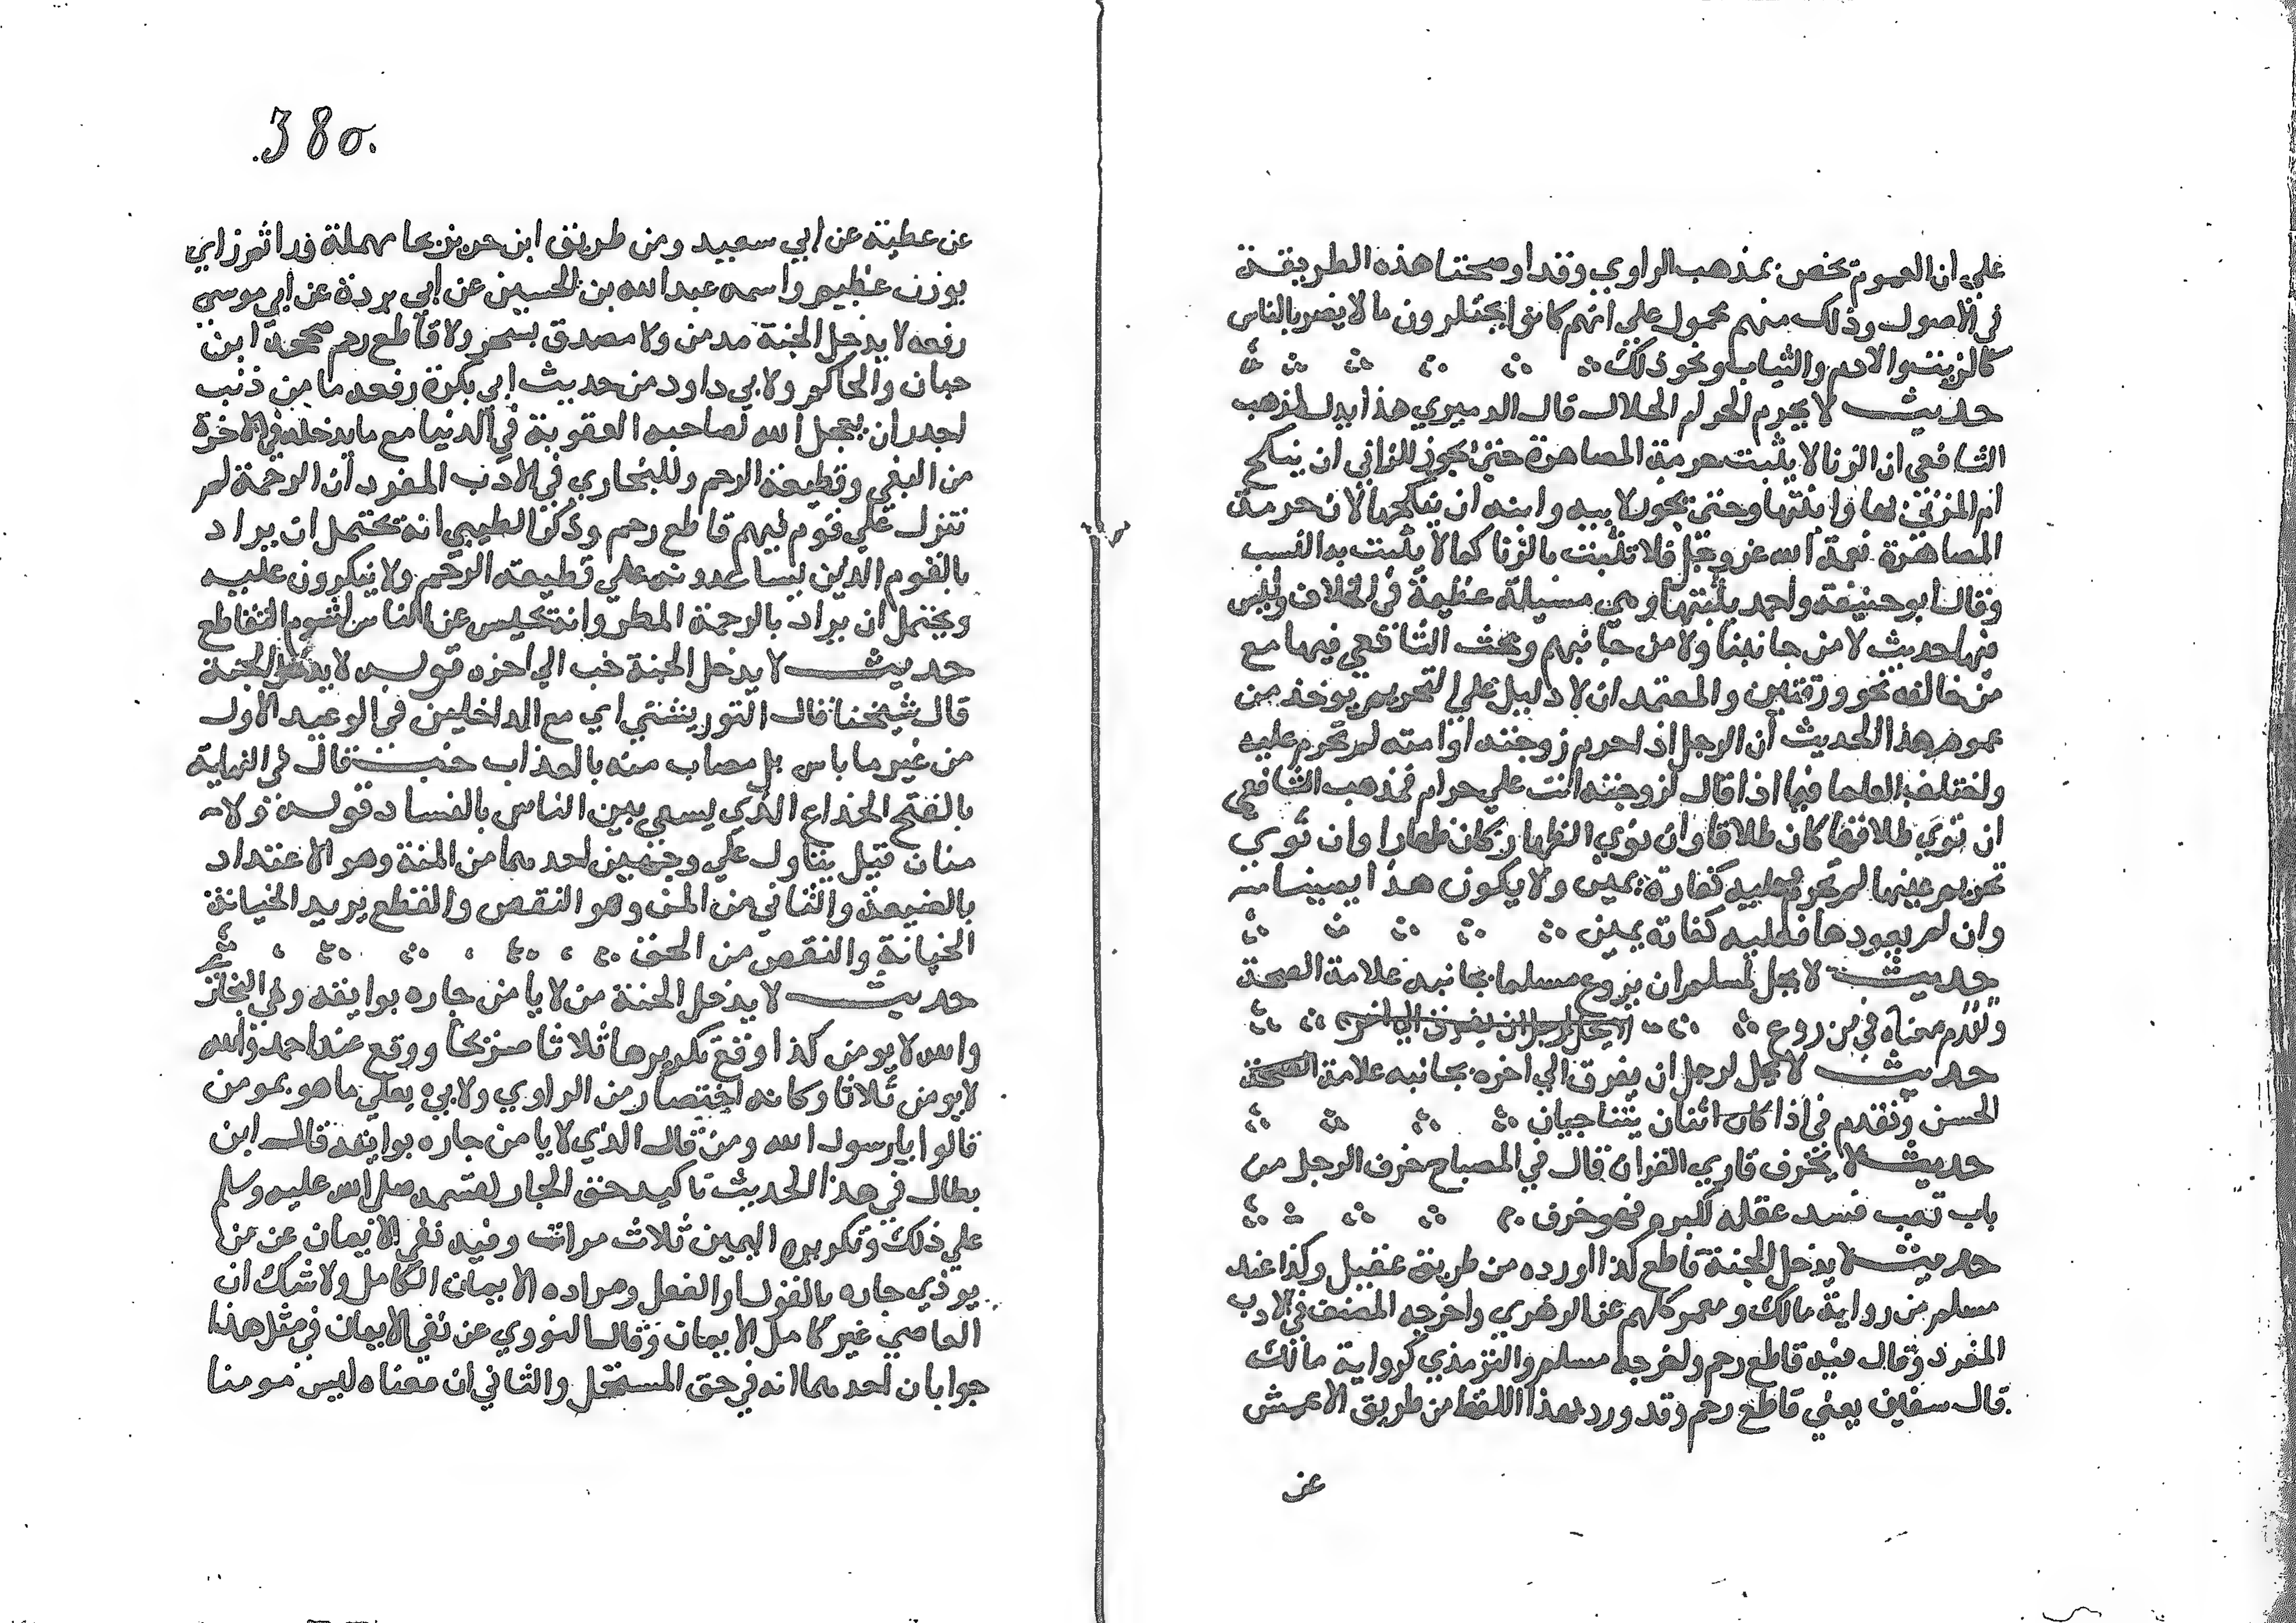 على ان العموم تخص بمذهب الراوي وقد اوضحتا هذه الطريقة
في الأصول وذلك منهم محمول على انهم كانوا يحتكرون ما لا يضر بالناس
كالزيت والادم والثياب ونحو ذلك
حديث لا يحرم الحرام الحلال قال الدميري هذا يدل لمذهب
الشافعي ان الزنا لا يثبت حرمة المصاهرة حتى يجوز للزاني ان ينكح
ام المزني بها وابنتها وحتى يجوز لابيه وابنه ان ينكحها لان حرمة
المصاهرة نعمة الله عز وجل فلا تثبت بالزنا كما لا يثبت به النسب
وقال ابو حنيفة واحمد يثبتها وهي مسيلة عظيمة في الخلاف وليس
فيها حديث لا من جانبنا ولا من جانبهم وبحث الشافعي فيها مع
من خالفه نحو ورقتين والمعتمد ان لا دليل على التحريم يوخذ من
عموم هذا الحديث أن الرجل اذا حرم زوجته او امته لم تحرم عليه
واختلف العلما فيما اذا قال لزوجته انت علي حرام فمذهب الشافعي
ان نوى طلاقها كان طلاقا وان نوي الظهار كان ظهارا وان نوي
تحريم عينها لم تحرم وعليه كفارة يمين ولا يكون هذا يمينا منه
وان لم يعود ها فعليه كفاته يمين
حديث لا يحل لمسلم ان يروع مسلما بجانبه علامة الصحة
وتقدم معناه في من روع لا يحل لرجل ان يفرق الى اخره
حديث لا يحل لرجل ان يفرق الى اخره بجانبه علامة الصحة
الحسن وتقدم في اذا كان اثنان يتناجيان
حديث لا يخرف قاري القران قال في المصباح خرف الرجل من
باب تعب فسد عقله لكبره فهو خرف
حديث لا يدخل الجنة قاطع كذا اورده من طريق عقيل وكذا عند
مسلم من رواية مالك ومعمر كلهم عن الزهري واخرجه المصنف في الادب
المفرد وقال فيه قاطع رحم واخرجه مسلم والترمذي كرواية مالك
قال سفين يعني قاطع رحم وقد ورد بهذا اللفظ من طريق الاعمش
عن
380.
عن عطية عن أبي سعيد ومن طريق ابن حريز بحا مهملة ورا ثم زاي
بوزن عظيم واسمه عبد الله بن الحسين عن أبي بردة عن أبي موسى
رفعه لا يدخل الجنة مدمن ولا مصدق بسحر ولا قاطع رحم صححه ابن
حبان والحاكم ولابي داود من حديث ابي بكرة رفعه ما من ذنب
اجدر ان يعجل الله لصاحبه العقوبة في الدنيا مع ما يدخله في الاخرة
من البغي وقطيعة الرحم وللبخاري في الادب المفرد أن الرحمة لم
تنزل على قوم فيهم قاطع رحم وذكر الطيبي انه يحتمل ان يراد
بالقوم الذين يساعدونه على قطيعة الرحم ولا ينكرون عليه
ويحتمل ان يراد بالرحمة المطر وانه يحبس عن الناس لشوم التقاطع
حديث لا يدخل الجنة خب الى اخره قوله لا يدخل الجنة
قال شيخنا قال التوربشتي اي مع الداخلين في الوعيد الأول
من غير ما باس بل مصاب منه بالعذاب خب قال في النهاية
بالفتح الخداع الذي يسعى بين الناس بالفساد قوله ولا
منان قيل يتاول على وجهين احدهما من المنة وهو الاعتداد
بالصنيعة والثاني من المن وهو النقص والقطع يريد الخيانة
الخيانة والنقص من الحق
حديث لا يدخل الجنة من لا يامن جاره بوايقه وفي البخار
والله لا يومن كذا وقع تكريرها ثلاثا صريحا ووقع عند احمد والله
لا يومن ثلاثا وكانه اختصار من الراوي ولابي يعلى ما هو بمومن
قالوا يا رسول الله ومن قال الذي لا يامن جاره بوايقه قال ابن
بطال في هذا الحديث تاكيد حق الجار لقسمه صلى الله عليه وسلم
على ذلك وتكريره اليمين ثلاث مرات وفيه نفي الايمان عن من
يوذي جاره بالقول او الفعل ومراده الايمان الكامل ولا شك ان
العاصي غير كامل الايمان وقال النووي عن نفي الايمان في مثل هذا
جوابان احدهما انه في حق المستحل والثاني ان معناه ليس مومنا